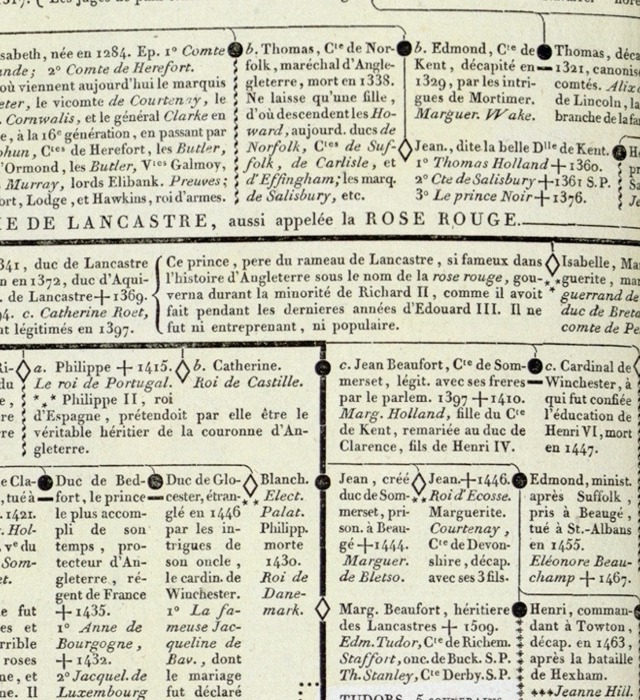 sabeth, née en 1284. Ep. 1º Comte
ande; 2º Comte de Herefort.
où viennent aujourd'hui le marquis
eter, le vicomte de Courtenay, le
. Cornwalis, et le général Clarke en
e, à la 16e génération, en passant par
ohun, Ctes de Herefort, les Butler,
'Ormond, les Butler, Vtes Galmoy,
Murray, lords Elibank. Preuves;
ort, Lodge, et Hawkins, roi d'armes.
b. Thomas, Cte de Nor-
folk, maréchal d'Angle-
gleterre, mort en 1338.
Ne laisse qu'une fille,
d'où descendent les Ho-
ward, aujourd. ducs de
Norfolk, Ctes de Suf-
folk, de Carlisle, et
d'Effingham; les marq.
de Salisbury, etc.
b. Edmond, Cte de
Kent, décapité en
1329, par les intri-
gues de Mortimer.
Marguer. Wake.
Jean., dite la belle Dlle de Kent.
1º Thomas Holland+1360.
2º Cte de Salisbury+1361 S.P.
3º Le prince Noir+1376.
Thomas, déca
1321, canonis
comtés. Alix
de Lincoln, la
branche de la fa
IE DE LANCASTRE, aussi appelée la ROSE ROUGE.
341, duc de Lancastre
n en 1372, duc d'Aqui-
. de Lancastre+1369.
94. c. Catherine Roet,
nt légitimés en 1397.
Ce prince, pere du rameau de Lancastre, si fameux dans
l'histoire d'Angleterre sous le nom de la rose rouge, gou-
verna durant la minorité de Richard II, comme il avoit
fait pendant les dernieres années d'Edouard III. Il ne
fut ni entreprenant, ni populaire.
Isabelle, Ma
guerite, mar
guerrand de
duc de Breta
comte de Pe
a. Philippe + 1415.
Le roi de Portugal.
*** Philippe II, roi
d'Espagne, prétendoit par elle être le
véritable héritier de la couronne d'An-
gleterre.
b. Catherine.
Roi de Castille.
c. Jean Beaufort, Cte de Som-
merset, légit. avec ses freres
par le parlem. 1397+1410.
Marg. Holland, fille du Cte
de Kent, remariée au duc de
Clarence, fils de Henri IV.
c. Cardinal de
Winchester, à
qui fut confiée
l'éducation de
Henri VI, mort
en 1447.
e Cla-
, tué à
1421.
. Hol-
, ve du
Som-
et.
e fut
es et
rrible
roses
ne, et
e. Il
Duc de Bed-
fort, le prince
le plus accom-
pli de son
temps, pro-
tecteur d'An-
gleterre, ré-
gent de France
+ 1435.
1º Anne de
Bourgogne,
+ 1432.
2º Jacquel. de
Luxembourg
Duc de Glo-
cester, étran-
glé en 1446
par les in-
trigues de
son oncle,
le cardin. de
Winchester.
1º La fa-
meuse Jac-
queline de
Bav., dont
le mariage
fut déclaré
Blanch.
Elect.
Palat.
Philipp.
morte
1430.
Roi de
Dane-
mark.
Jean, créé
duc de Som-
merset, pri-
son. à Beau-
gé+1444.
Marguer.
de Bletso.
Jean.+1446.
Roi d'Ecosse.
Marguerite.
Courtenay,
Cte de Devon-
shire, décap.
avec ses 3 fils.
Edmond, minist.
après Suffolk,
pris à Beaugé,
tué à St.-Albans
en 1455.
Eléonore Beau-
champ + 1467.
Marg. Beaufort, héritiere
des Lancastres + 1509.
Edm. Tudor, Cte de Richem.
Staffort, onc. de Buck. S.P.
Th. Stanley, Cte de Derby. S.P.
Henri, comman-
dant à Towton,
décap. en 1463,
après la bataille
de Hexham.
***Jeanne Hill